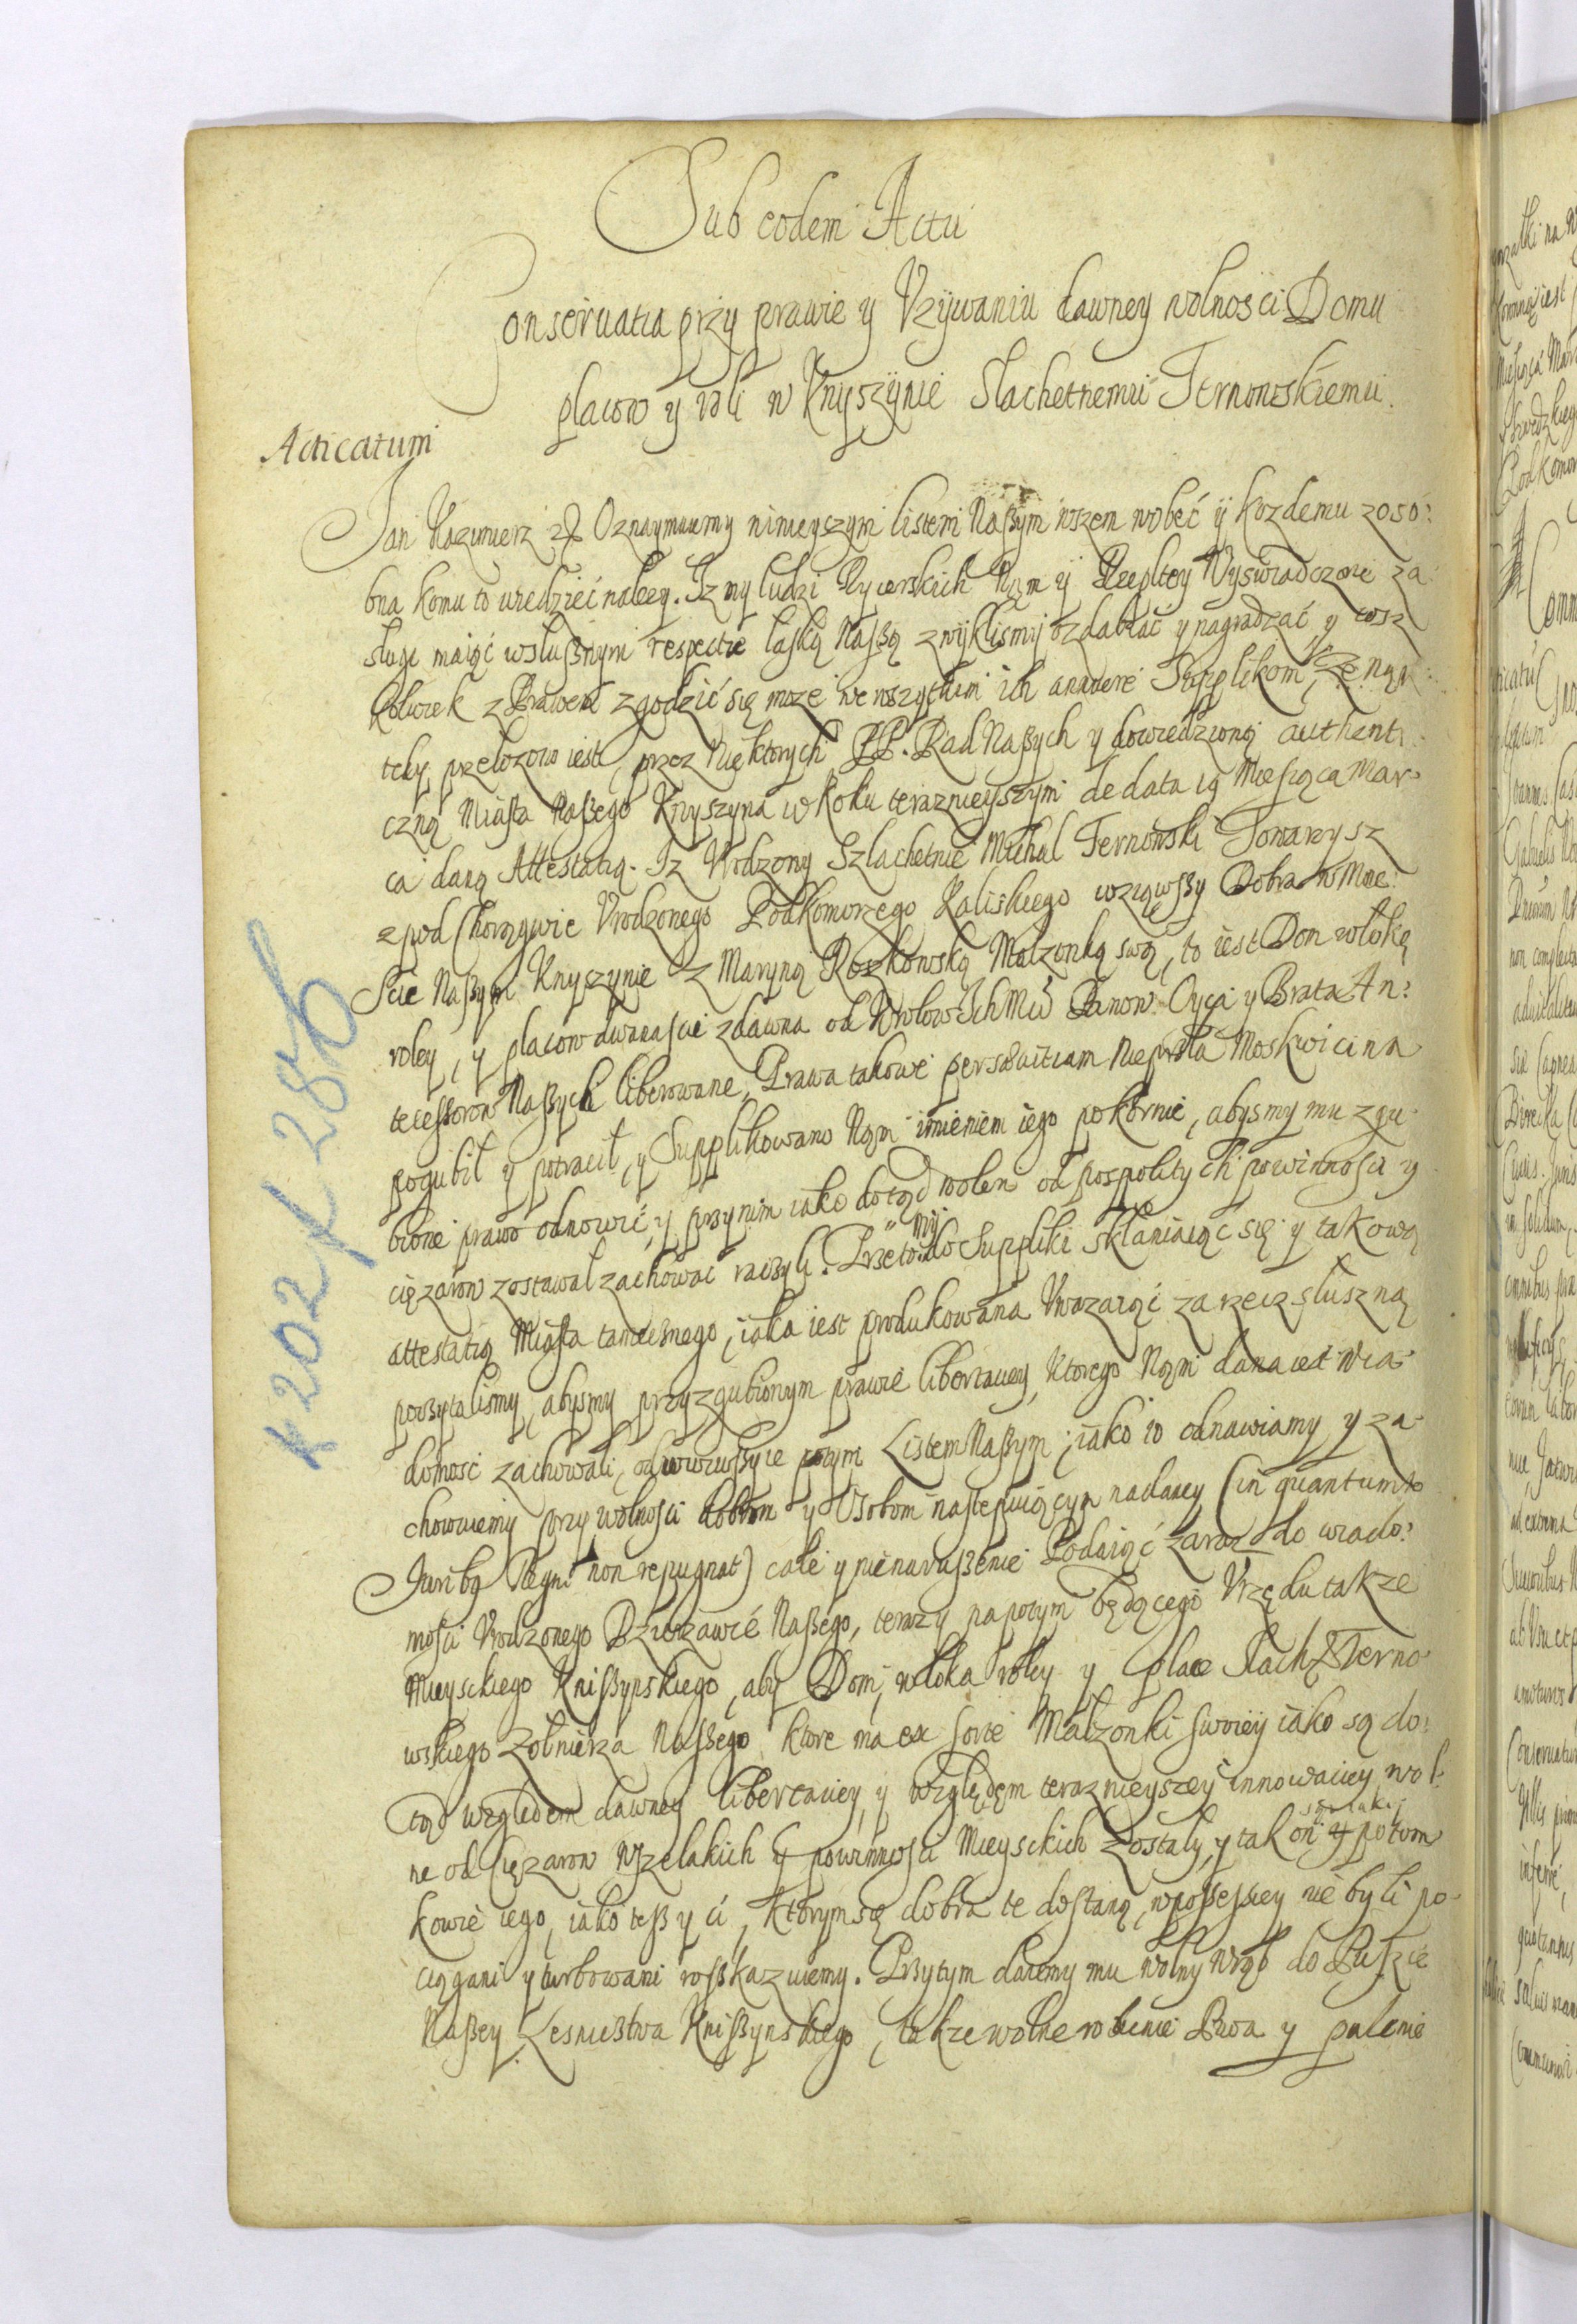 Sub eodem Actu
Conseruatia przy prawie y Vzywaniu dawney wolności Domu
placow y roli w Knyszynie Slachetnemu Ternowskiemu.
Acticatum
Jan Kazimierz etc Oznaymuiemy ninieyszym listem Naßym wszem wobeć y kozdemu zoso:
bna komu to wiedzieć nalezy. Iz my ludzi Rycerskich Nąm y Rzepltey Wyswiadczone za
sługi maiąć wsłußnym respectie łaską Naßą zwykliśmy ozdabiać y nagradzać, y cosz
kolwiek z Prawem zgodzić się może we wszytkim ich annuere Supplikom. Ze nąm
tedy przełozono iest, przez Niektorych PP. Rad Naßych y dowiedziono authenti
czną Miasta Naßego Knyszyna w Roku teraznieyszym de data 19 Miesiąca Mar:
ca daną Attestatią. Iz Vrodzony Szlachetnie Michał Ternowski Towarzysz
z pod Chorągwie Vrodzonego Podkomorzego Kaliskiego wziąwßy Dobra w Mie:
ście Naßym Knyszynie z Maryną Roszkowską Małzonką swą, to iest Dom włokę
roley, y placow dwanaście zdawna od Krolow Ich Mci Panow Oyca y Brata An:
tecessorow Naßych liberowane, Prawa takowe per saevitiam Nieprzła Moskwicina
pogubił y potracił, y Supplikowano Nąm imieniem iego pokornie, abysmy mu zgu
bione prawo odnowić, y przy nim iako dotąd wolen od pospolitych powinności y
cięzarow zostawał zachować raczyli. Przeto my do Suppliki skłaniaiąć się y takową
attestatią Miasta tamecznego, iaka iest produkowana Vwazaiąć za rzecz słuszną
poczytaliśmy, abyśmy przy zgubionym prawie libertaciey, ktorego Nąm dana iest wia
domość zachowali, odnowiwßy ie tym Listem Naßym, iako to odnawiamy y za
chowuiemy przy wolności dobrom y Osobom następuiącym nadaney (in quantum
Iuribus Regni non repugnat) cale y nienarußenie Podaiąć zaraz do wiado:
mości Vrodzonego Dzierzawcé Naßego, teraz y napotym będącego Vrzędu takze
Mieyskiego Knißynskiego, aby Dom, włoka roley y place Slach. Terno
wskiego Zołnierza Naßego ktore ma ex sorte Małzonki swoiey iako są do:
tąd względem dawney libertaciey, y względem teraznieyszey innowaciey wol:
ne od cięzarow wszelakich y powinności Mieyskich zostały, y tak on sąmiaki y potom
kowie iego, iako teß y ci, ktorym są dobra te dostaną, w possessiey nie byli po
ciągani y turbowani roßkazuiemy. Przytym daiemy mu wolny Wrąb do Puszcie
Naßey Lesnictwa Knißynskiego, takze wolne robienie Piwa y palenie
K 202 f 286